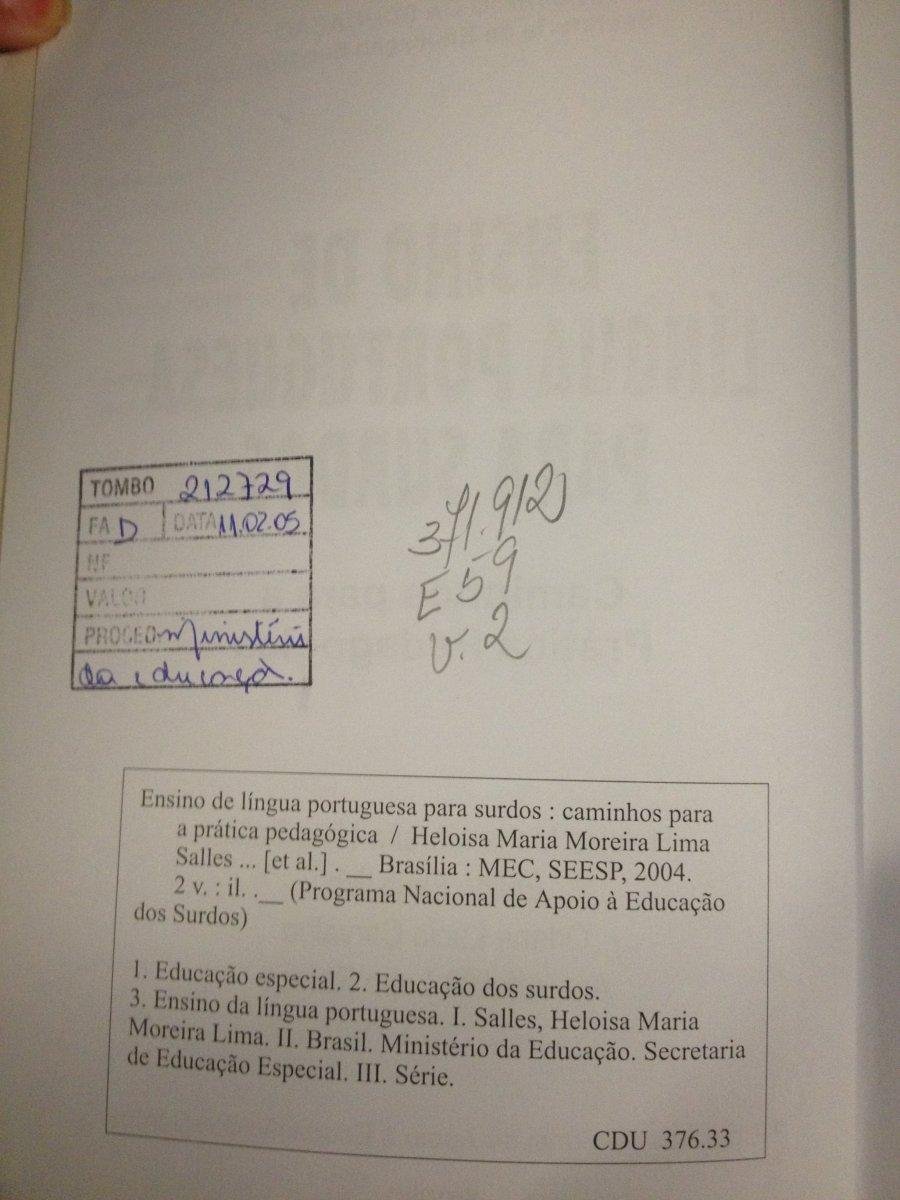 ENSINO DE
LÍNGUA PORTUGUESA
PARA SURDOS
TOMBO 212729
FA D DATA 11.02.05
NF
VALOR
PROCED. Ministério
da educação.
371.912
E59
v.2
Ensino de língua portuguesa para surdos : caminhos para
a prática pedagógica / Heloisa Maria Moreira Lima
Salles ... [et al.] . __ Brasília : MEC, SEESP, 2004.
2 v. : il. .__ (Programa Nacional de Apoio à Educação
dos Surdos)
1. Educação especial. 2. Educação dos surdos.
3. Ensino da língua portuguesa. I. Salles, Heloisa Maria
Moreira Lima. II. Brasil. Ministério da Educação. Secretaria
de Educação Especial. III. Série.
CDU 376.33